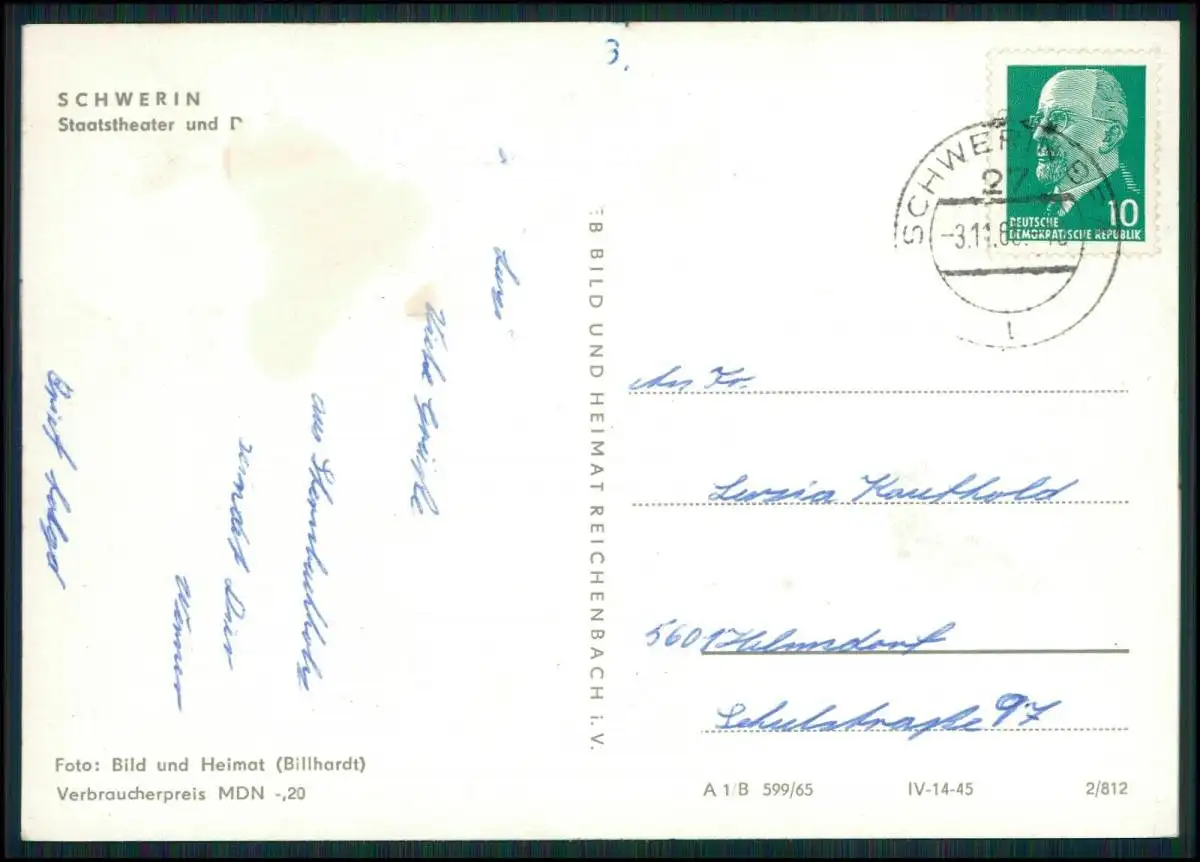 3.
SCHWERIN
Staatstheater und
Luzi
Viele Grüße
aus Sternbuchholz
sendet Dir
Werner
Brief folgt
Foto: Bild und Heimat (Billhardt)
Verbraucherpreis MDN -,20
EB BILD UND HEIMAT REICHENBACH i. V.
SCHWERIN
27
-3.11.
DEUTSCHE
DEMOKRATISCHE REPUBLIK
10
An Fr.
Luzia Kaufhold
5601 Helmsdorf
Schulstraße 97
A 1/B 599/65
IV-14-45
2/812